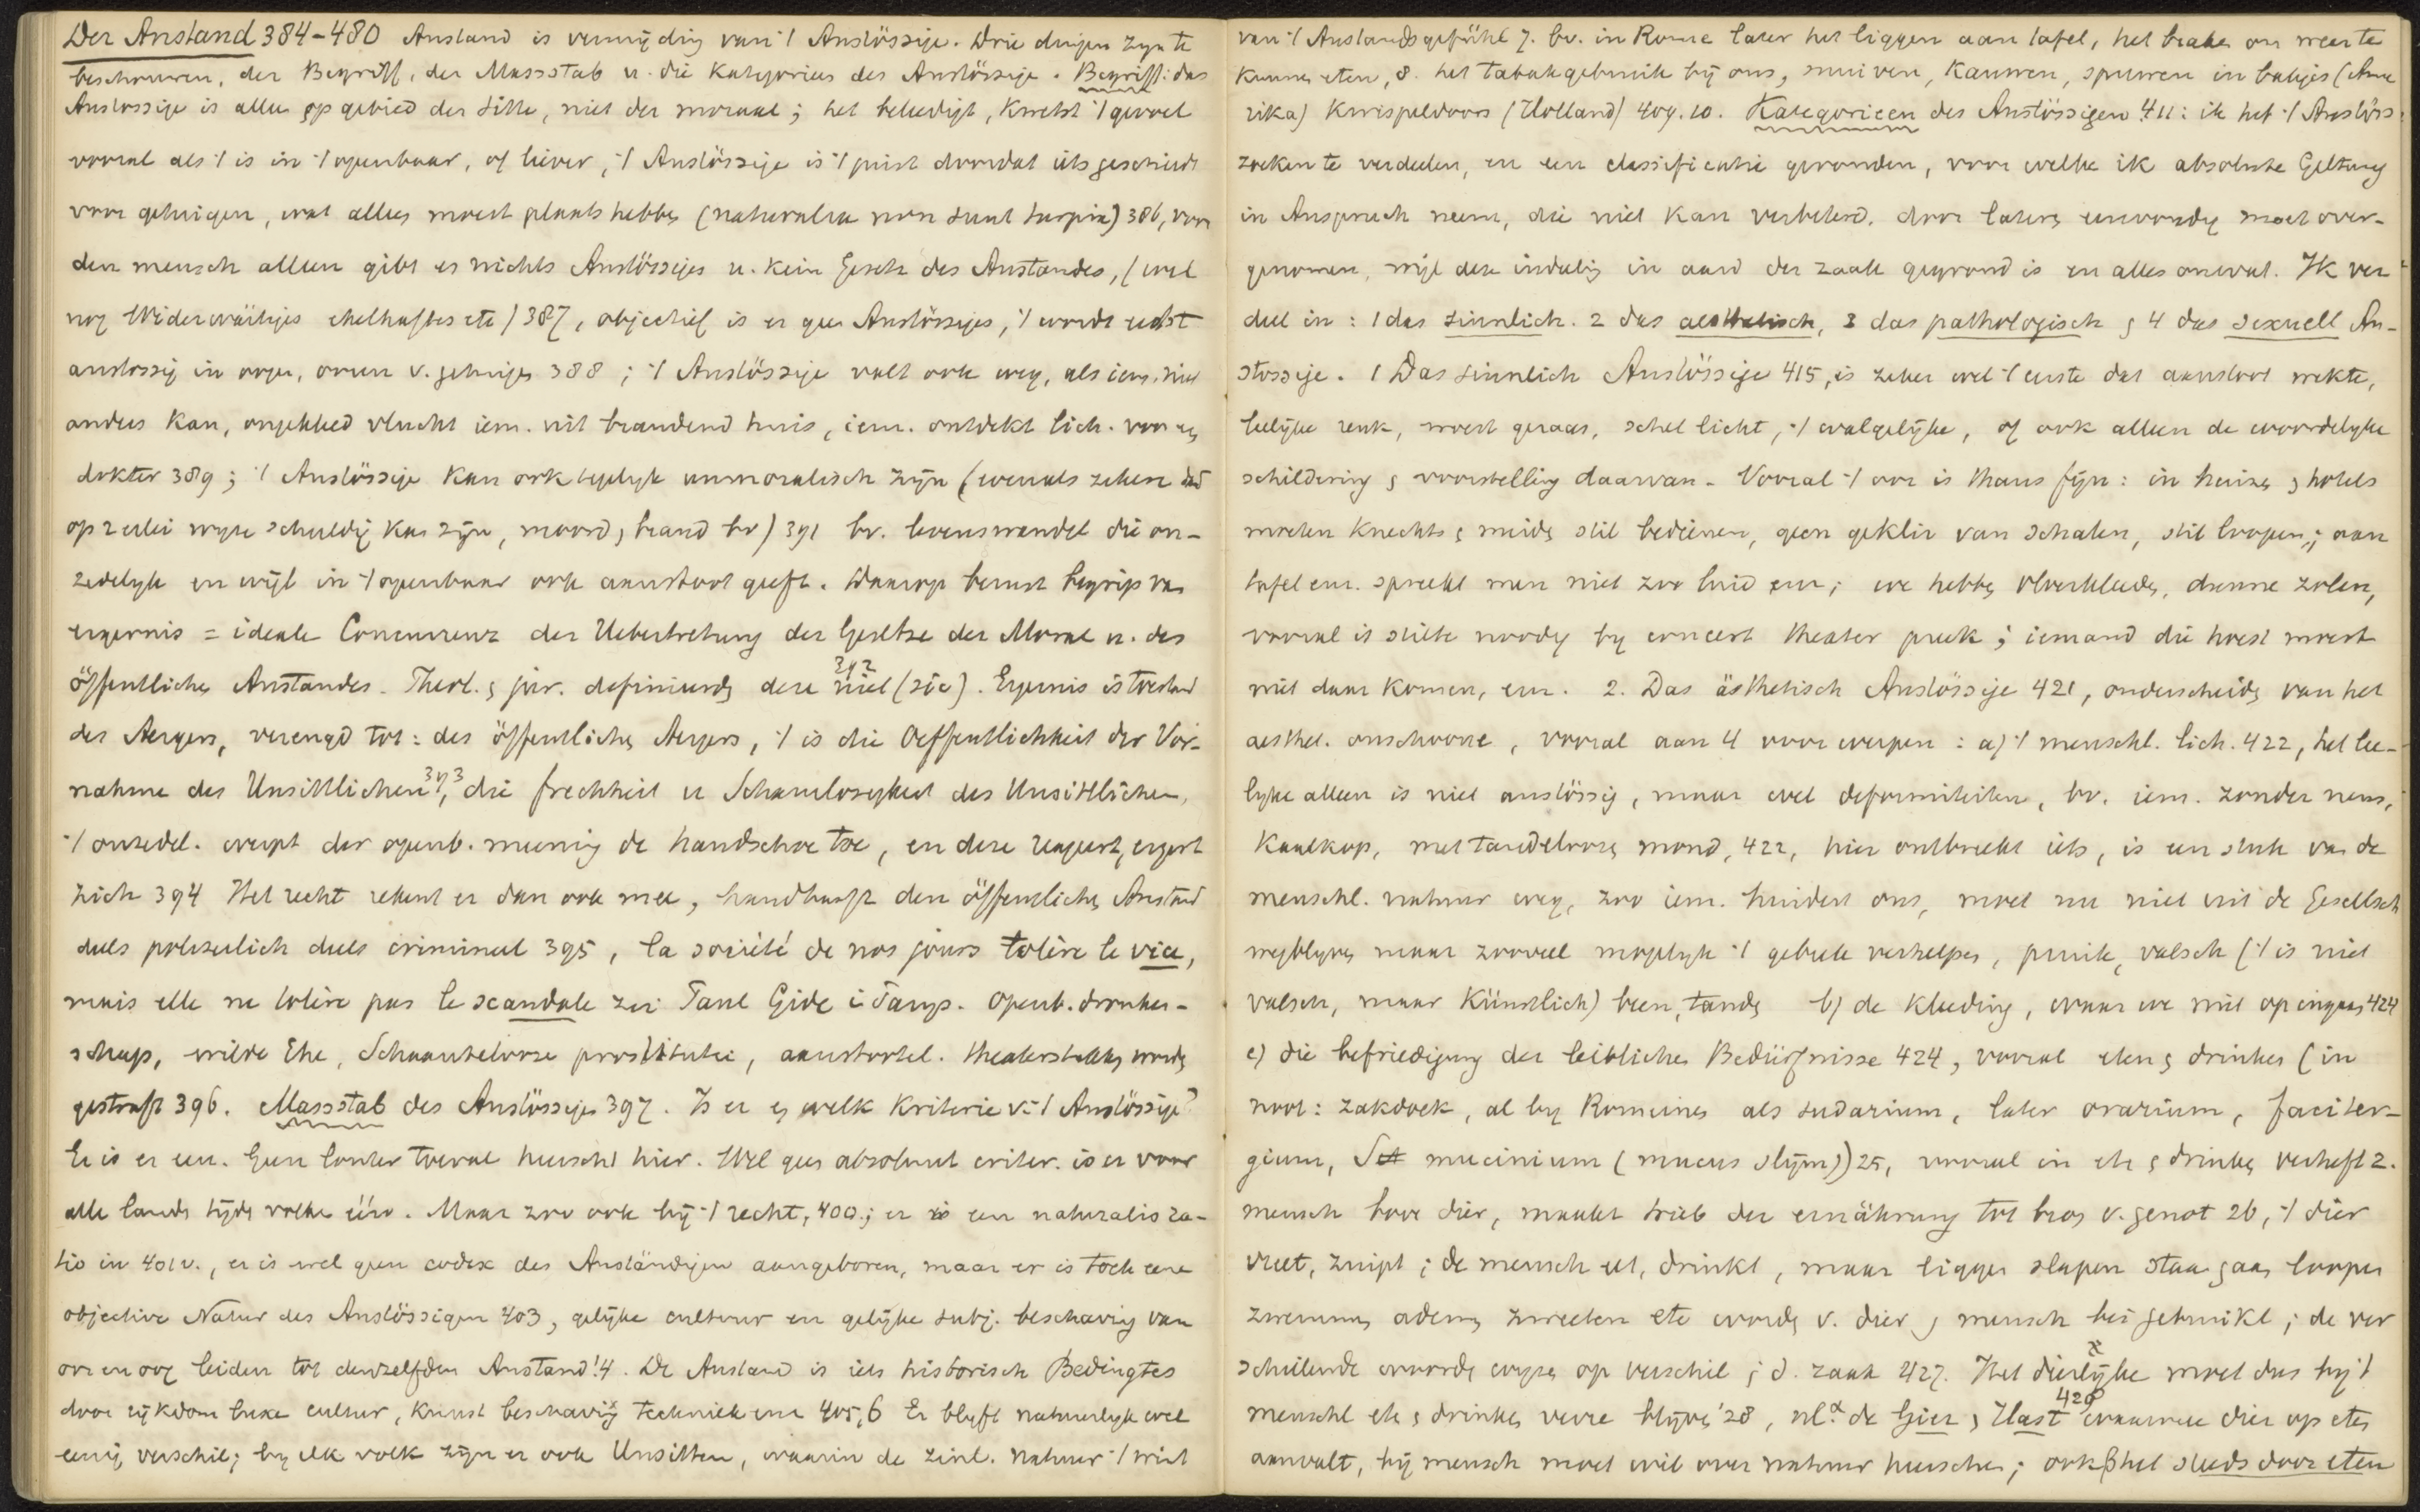 Der Anstand 384-480 Anstand is vermijding van 't Anstössige. Drie dingen zijn te
beschouwen, der Begriff, der Massstab u. die Kategorien des Anstössige. Begriff: das
Anstossige is alleen op gebied der Sitte, niet der moraal; het beleedigt, kwetst 't gevoel
vooral als 't is in 't openbaar, of liever, 't Anstössige is 't juist doordat iets geschiedt
voor getuigen, wat alleen moest plaats hebben (naturalia non sunt turpia) 386, voor
den mensch alleen gibt es nichts Anstössiges u. kein Gesetz des Anstandes, (wel
nog Widerwärtiges ekelhaftes etc) 387, objectief is er geen Anstössiges, 't wordt eerst
anstossig in oogen, ooren v. getuigen 388; 't Anstössige valt ook weg, als iem. niet
anders kan, ongekleed vlucht iem. uit brandend huis, iem. ontdekt lich. voor een
dokter 389; 't Anstössige kan ook tegelijk unmoralisch zijn (evenals zekere daad
op 2erlei wijze schuldig kan zijn, moord, brand bv) 391 bv. levenswandel die on-
zedelijk en wijl in 't openbaar ook aanstoot geeft. Daarop berust begrip van
ergernis = ideale Concurrenz der Uebertretung der Gesetze der Moral u. des
öffentlichen Anstandes. Theol. & jur. definieerden deze niet (sic) 392. Ergernis is toestand
des Aergers, verengd tot: des öffentlichen Aergers, 't is die Oeffentlichkeit der Vor-
nahme des Unsittlichen 393, die frechheit u Schamlosigkeit des Unsittlichen,
't onzedel. werpt der openb. meening de handschoe toe, en deze reageert, ergert
zich 394 Het recht rekent er dan ook mee, handhaaft den öffentlichen Anstand
deels polizeilich deels crimineel 395, la société de nos jours tolère le vice,
mais elle ne tolère pas le scandale zei Paul Gide i Temps. Openb. dronken-
schap, wilde Ehe, Schaamtelooze prostitutie, aanstootel. theaterstukken worden
gestraft 396. Massstab des Anstössigen 397. Is er een welk kriterie v. 't Anstössige?
Er is er een. Geen louter toeval heerscht hier. Wel geen absoluut criter. is er voor
alle landen tijden volken één. Maar zoo ook bij 't recht, 400; er is een naturalis ra-
tio in 401v., er is wel geen codex des Anständigen aangeboren, maar er is toch eene
objective Natur des Anstössigen 403, gelijke cultuur en gelijke subj. beschaving van
oor en oog leiden tot denzelfden Anstand! 4. De Anstand is iets historisch Bedingtes
door rijkdom luxe cultuur, kunst beschaving techniek enz 405,6 Er blijft natuurlijk wel
eenig verschil; bij elk volk zijn er ook Unsitten, waarin de zinl. natuur 't wint
van 't Anstandsgefühl 7. bv. in Rome later het liggen aan tafel, het braken om weer te
kunnen eten, 8. het tabakgebruik bij ons, snuiven, kauwen, spuwen in bakjes (Ame
rika) Kwispeldoors (Holland) 409.10. Kategorieen des Anstössigen 411: ik heb 't Anstöss.
zoeken te verdeelen, en een classificatie gevonden, voor welke ik absolute Geltung
in Anspruch neem, die niet kan verbeterd, door latere eenvoudig moet over-
genomen, wijl deze indeeling in aard der zaak gegrond is en alles omvat. Ik ver
deel in: 1 das sinnlich. 2 das aesthetisch, 3 das pathologisch & 4 das sexuell An-
stossige. 1 Das sinnlich Anstössige 415, is zeker wel 't eerste dat aanstoot wekte,
leelijke reuk, woest geraas, schel licht, 't walgelijke, of ook alleen de woordelijke
schildering & voorstelling daarvan. Vooral 't oor is thans fijn: in huizen & hotels
moeten knechts & meiden stil bedienen, geen geklir van schalen, stil loopen; aan
tafel enz. spreekt men niet zoo luid enz; we hebben vloerkleeden, dunne zolen,
vooral is stilte noodig bij concert theater preek; iemand die hoest moest
niet daar komen, enz. 2. Das ästhetisch Anstössige 421, onderscheiden van het
aesthet. onschoone, vooral aan 4 voorwerpen: a) 't menschl. lich. 422, het lee-
lijke alleen is niet anstössig, maar wel deformiteiten, bv. iem. zonder neus,
Kaalkop, met tandeloozen mond, 422, hier ontbreekt iets, is een stuk van de
menschl. natuur weg, zoo iem. hindert ons, moet nu niet uit de Gesellsch
wegblijven maar zooveel mogelijk 't gebrek verhelpen, pruik, valsch ('t is niet
valsch, maar Künstlich) been, tanden b) de kleeding, waar we niet op ingaan 424
c) die befriedigung der leiblichen Bedürfnisse 424, vooral eten & drinken (in
noot: zakdoek, al bij Romeinen als sudarium, later orarium, faciter-
gium, mucinium (mucus slijm)) 25, vooral in eten & drinken verheft z.
mensch boven dier, maakt trieb der ernährung tot bron v. genot 26, 't dier
vreet, zuipt; de mensch eet, drinkt, maar liggen slapen staan gaan loopen
zwemmen ademen zweeten etc worden v. dier & mensch bei gebruikt; de ver
schillende woorden wijzen op verschil i. d. zaak 427. Het dierlijke moet dus bij 't
menschl eten & drinken verre blijven '28, nl. α de Gier & Hast 428 waarmee dier op eten
aanvalt, bij mensch moet wil over natuur heerschen; ook β het steeds door eten